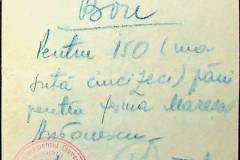 Bon
Pentru 150 (una
sută cinci zeci) pâini
pentru ferma Mareșal
Antonescu